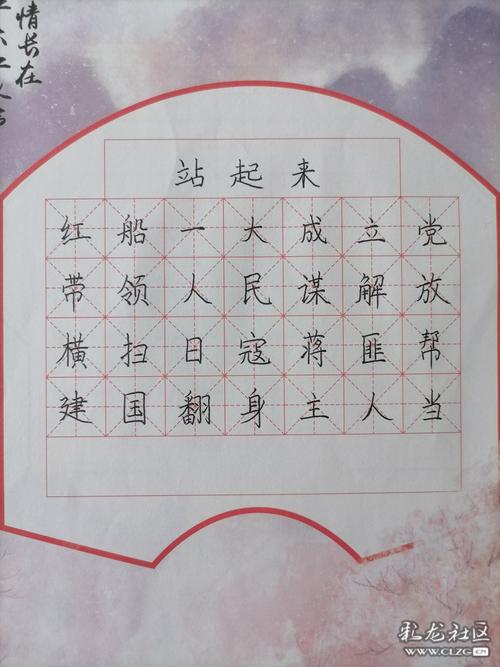 情长在
站起来
红船一大成立党
带领人民谋解放
横扫日寇蒋匪帮
建国翻身主人当
彩龙社区
WWW.CLZG.CN